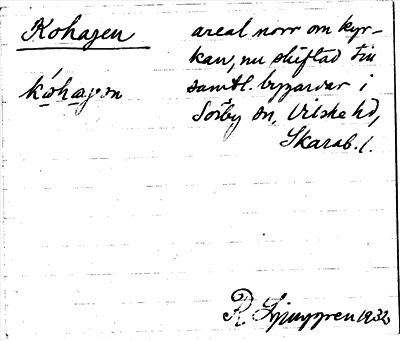 Kohagen
kóhagɷn
areal norr om kyr-
kan, nu skiftad till
samtl. byggardar i
Sörby sn, Vilske hd,
Skarab. l.
R. Ljunggren 1932